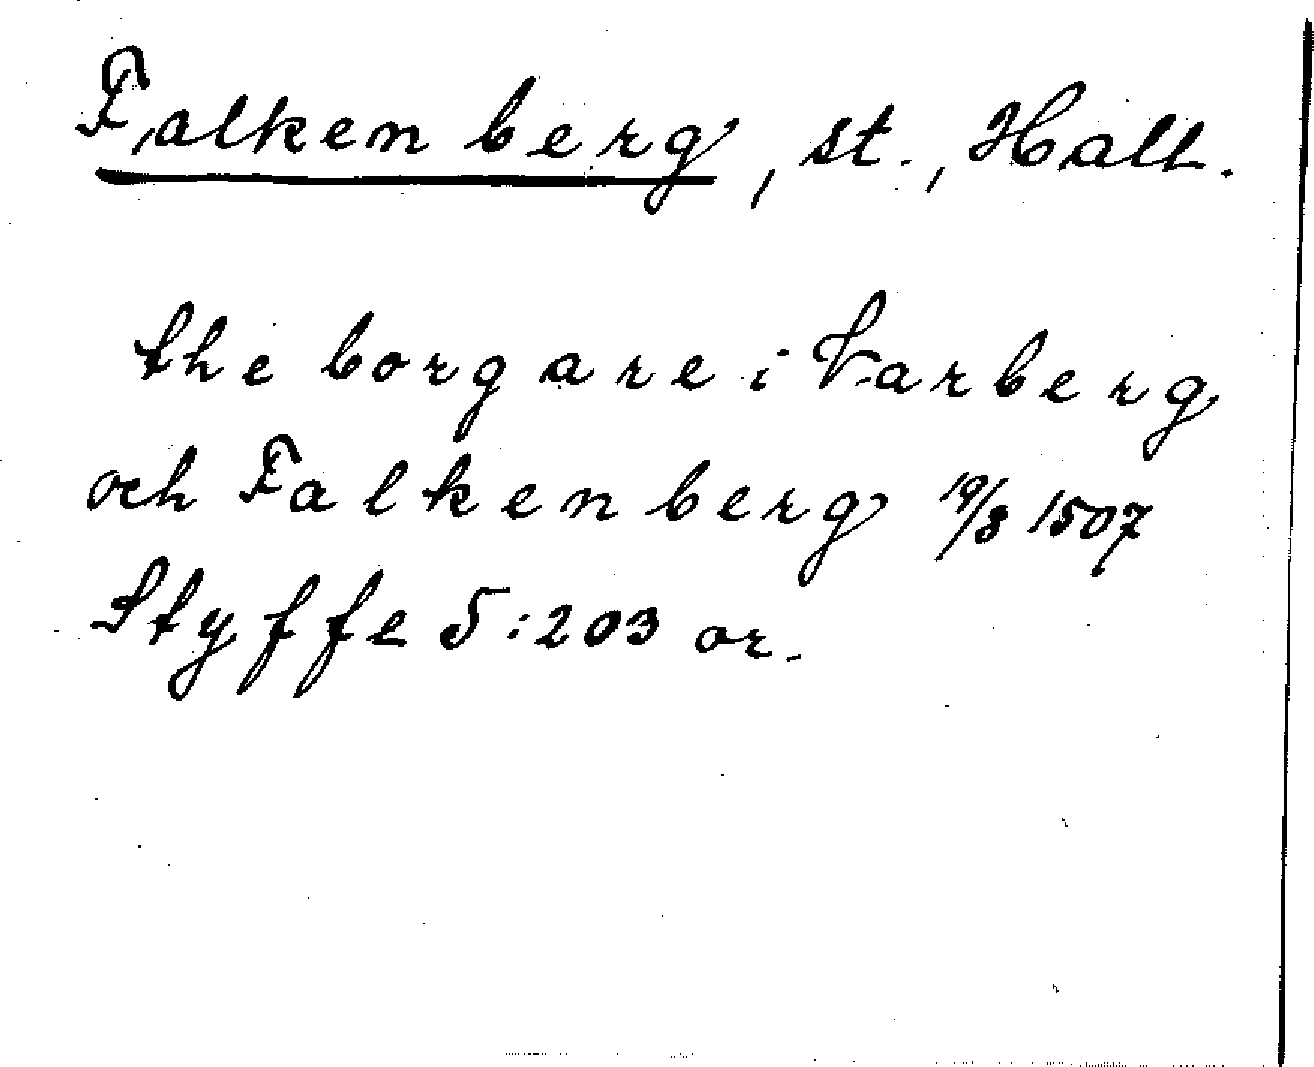 Falkenberg, st., Hall.
the borgare i Varberg
och Falkenberg 19/8 1507
Styffe 5:203 or.